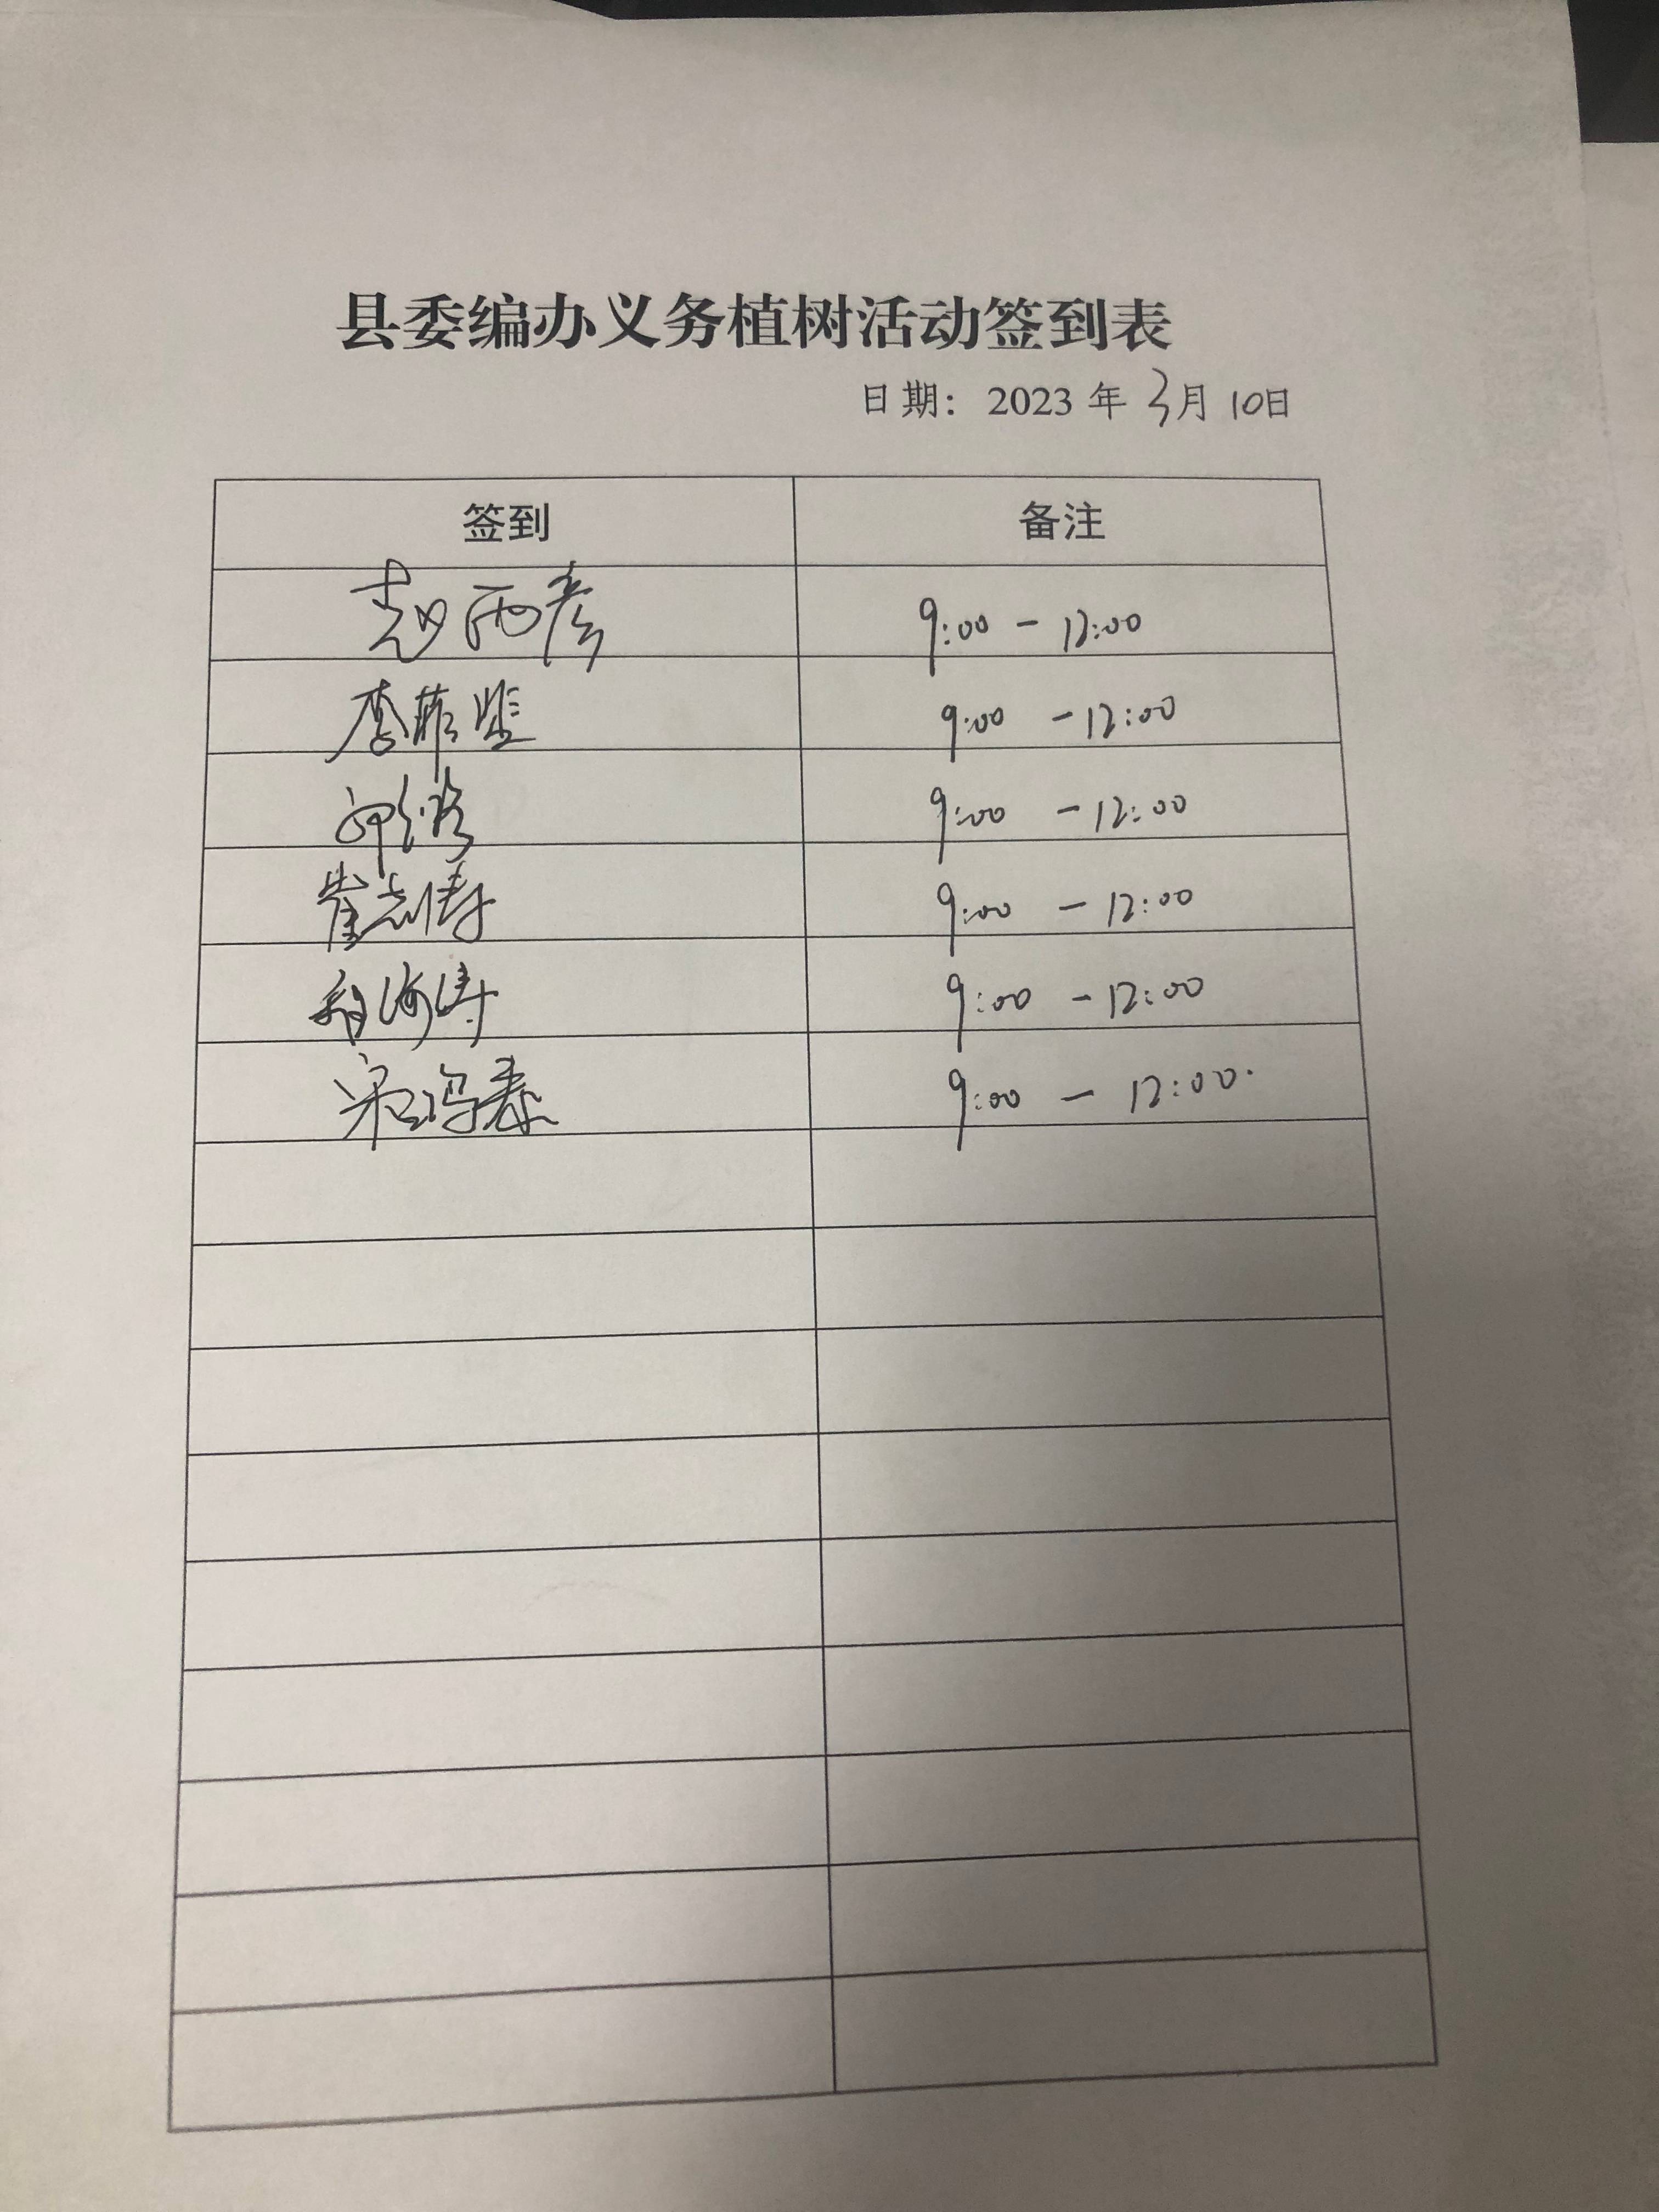 县委编办义务植树活动签到表
日期：2023 年 3月 10日
签到 备注
赵雨彦 9:00 - 12:00
李菲 9:00 - 12:00
9:00 - 12:00
崔志涛 9:00 - 12:00
程海涛 9:00 - 12:00
宋鸿泰 9:00 - 12:00.